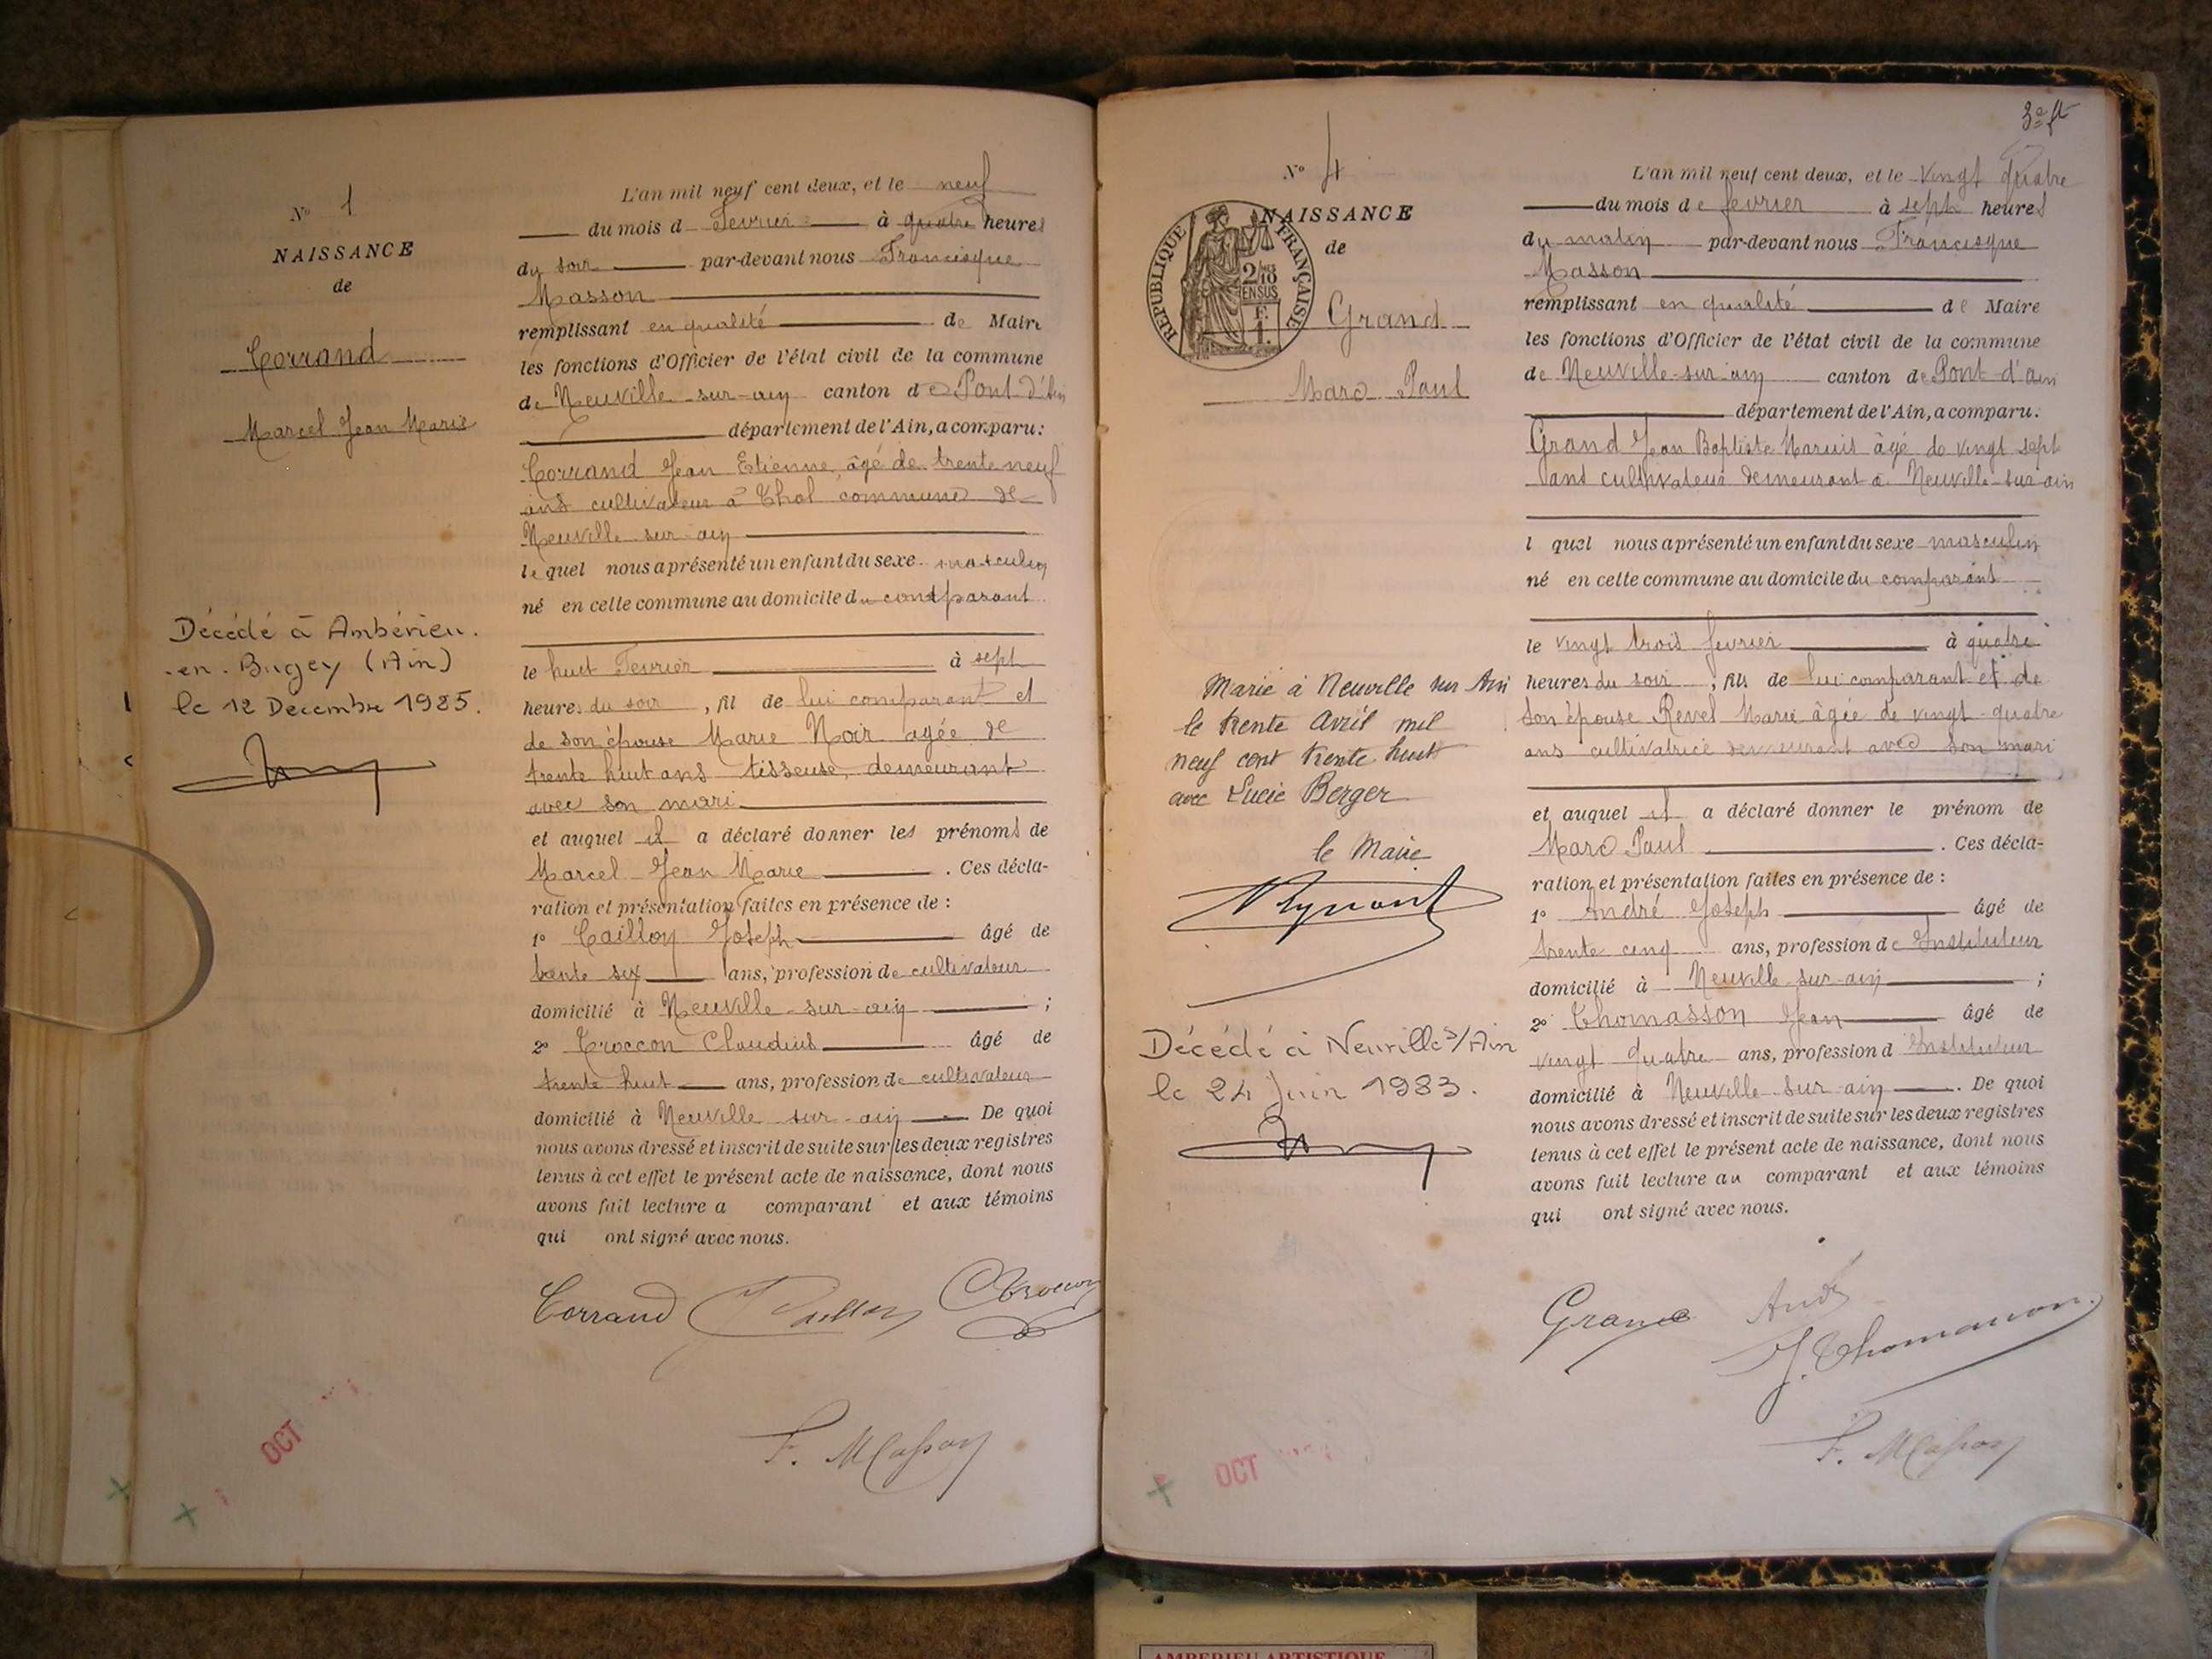 N° 1
NAISSANCE
de
Corrand
Marcel Jean Marie
Décédé à Ambérieu.
-en-Bugey (Ain)
le 12 Decembre 1985.
L'an mil neuf cent deux, et le neuf
du mois d Fevrier à quatre heures
du soir par-devant nous Francisque
Masson
remplissant en qualité de Maire
les fonctions d'Officier de l'état civil de la commune
de Neuville-sur-ain canton de Pont d'Ain
département de l'Ain, a comparu:
Corrand Jean Etienne, âgé de trente neuf
ans cultivateur à Thol commune de
Neuville sur-ain
lequel nous a présenté un enfant du sexe masculin
né en cette commune au domicile du comparant
le huit Fevrier à sept
heures du soir, fil de lui comparant et
de son épouse Marie Noir agée de
trente huit ans tisseuse, demeurant
avec son mari
et auquel il a déclaré donner les prénoms de
Marcel Jean Marie. Ces décla-
ration et présentation faites en présence de :
1° Caillon Joseph âgé de
trente six ans, profession de cultivateur
domicilié à Neuville-sur-ain ;
2° Croccon Claudius âgé de
trente huit ans, profession de cultivateur
domicilié à Neuville sur-ain. De quoi
nous avons dressé et inscrit de suite sur les deux registres
tenus à cet effet le présent acte de naissance, dont nous
avons fait lecture a comparant et aux témoins
qui ont signé avec nous.
Corrand
F. Masson
OCT
3e ft
N° 4
NAISSANCE
de
RÉPUBLIQUE FRANÇAISE
2/10
EN SUS
F.
1.
Grand
Marc Paul
Marie à Neuville sur Ain
le trente Avril mil
neuf cent trente huit
avec Lucie Berger
le Maire
Décédé à Neuville s/Ain
le 24 Juin 1983.
L'an mil neuf cent deux, et le vingt quatre
du mois de fevrier à sept heures
du matin par-devant nous Francisque
Masson
remplissant en qualité de Maire
les fonctions d'Officier de l'état civil de la commune
de Neuville-sur ain canton de Pont-d'ain
département de l'Ain, a comparu:
Grand Jean Baptiste âgé de vingt sept
ans cultivateur demeurant à Neuville-sur-ain
l quel nous a présenté un enfant du sexe masculin
né en cette commune au domicile du comparant
le vingt trois fevrier à quatre
heures du soir, fils de lui comparant et de
son épouse Revel Marie âgée de vingt-quatre
ans cultivatrice demeurant avec son mari
et auquel il a déclaré donner le prénom de
Marc Paul. Ces décla-
ration et présentation faites en présence de :
1° André Joseph âgé de
trente cinq ans, profession de Instituteur
domicilié à Neuville-sur-ain ;
2° Thomasson Jean âgé de
vingt quatre ans, profession d Instituteur
domicilié à Neuville sur-ain. De quoi
nous avons dressé et inscrit de suite sur les deux registres
tenus à cet effet le présent acte de naissance, dont nous
avons fait lecture au comparant et aux témoins
qui ont signé avec nous.
Grand André
J. Thomasson
F. Masson
OCT
AMBERIEU ARTISTIQUE